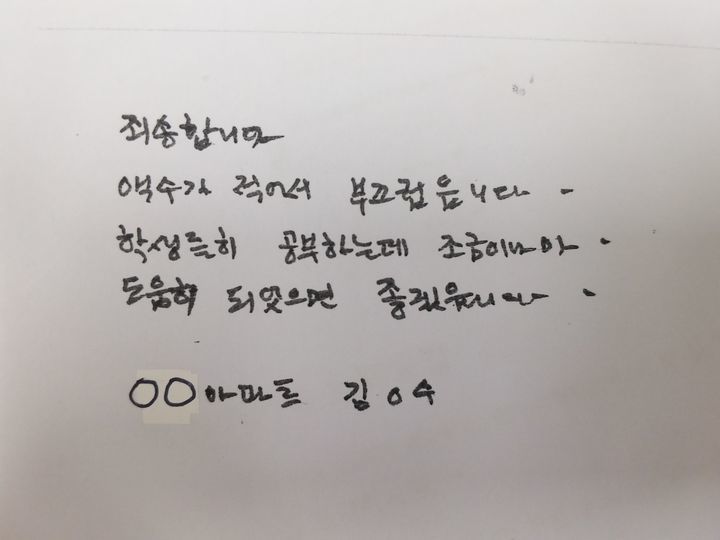 죄송합니다
액수가 적어서 부끄럽읍니다.
학생들히 공부하는데 조금이나마.
도움히 되였으면 좋겠읍니다.
○○아파트 김○수